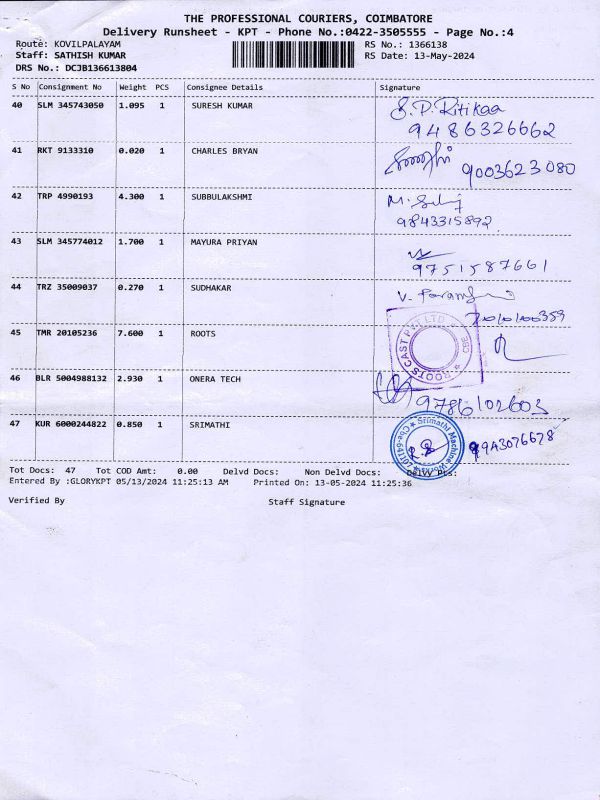 THE PROFESSIONAL COURIERS, COIMBATORE
Delivery Runsheet - KPT - Phone No.:0422-3505555 - Page No.:4
Route: KOVILPALAYAM RS No.: 1366138
Staff: SATHISH KUMAR RS Date: 13-May-2024
DRS No.: DCJB136613804
S No Consignment No Weight PCS Consignee Details Signature
40 SLM 345743050 1.095 1 SURESH KUMAR S.P. Ritikaa
9486326662
41 RKT 9133310 0.020 1 CHARLES BRYAN 9003623080
42 TRP 4990193 4.300 1 SUBBULAKSHMI
9843315892
43 SLM 345774012 1.700 1 MAYURA PRIYAN
9751587661
44 TRZ 35009037 0.270 1 SUDHAKAR
45 TMR 20105236 7.600 1 ROOTS ROOTS CAST PVT LTD CBE
46 BLR 5004988132 2.930 1 ONERA TECH
9786102603
47 KUR 6000244822 0.850 1 SRIMATHI Srimathi Machine Works
Tot Docs: 47 Tot COD Amt: 0.00 Delvd Docs: Non Delvd Docs: Delvy Pts:
Entered By :GLORYKPT 05/13/2024 11:25:13 AM Printed On: 13-05-2024 11:25:36
Verified By Staff Signature